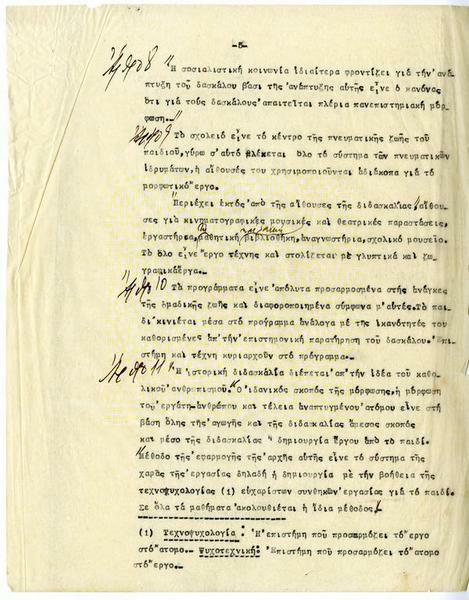 -5-
Άρθρο 8 "Η σοσιαλιστική κοινωνία ιδιαίτερα φροντίζει γιά τήν'ανά
πτυξη τοῦ δασκάλου βάσι της'ανάπτυξης αυτῆς εἶνε ὁ κανόνας
ὅτι γιά τούς δασκάλους'απαιτεῖται πλέρια πανεπιστημιακή μόρ
φωση."
Άρθρο 9 Τό σχολειό εἶνε τό κέντρο τῆς πνευματικῆς ζωῆς τοῦ
παιδιοῦ,γύρω σ'αυτό πλέκεται ὅλο τό σύστημα τῶν πνευματικῶν
ἱδρυμάτων,ἡ αίθουσές του χρησιμοποιοῦνται αδιάκοπα γιά τό
μορφωτικό'εργο.
"Περιέχει ἐκτός'από τῆς αίθουσες τῆς διδασκαλίας,'αίθου-
σες γιά κινηματογραφικές μουσικές καί θεατρικές παραστάσεις,
εργαστήρια, μαθητική βιβλιοθήκη,αναγνωστήρια,σχολικό μουσεῖο.
Τό ὅλο εἶνε'εργο τέχνης καί στολίζεται μέ γλυπτικά καί ζω-
γραφικά'εργα.
Άρθρο 10 Τά προγράμματα εἶνε'απόλυτα προσαρμοσμένα στῆς ἀνάγκες
τῆς ὁμαδικῆς ζωῆς καί διαφοροποιημένα σύμφωνα μ'αυτές.Τό παι
δί κινιέται μέσα στό πρόγραμμα ἀνάλογα μέ τῆς ικανότητές του
καθορισμένες ἀπ'τήν'επιστημονική παρατήρηση τοῦ δασκάλου.'Επι
στήμη καί τέχνη κυριαρχοῦν στό πρόγραμμα.
Άρθρο 11 "Ἡ ἱστορική διδασκαλία διέπεται'απ'τήν ἰδέα τοῦ καθο
λικοῦ'ανθρωπισμοῦ."Ὁ ιδανικός σκοπός τῆς μόρφωσης,ἡ μόρφωση
τοῦ'εργάτη-ἀνθρώπου καί τέλεια ἀναπτυγμένου'ατόμου εἶνε στή
βάση ὅλης τῆς'αγωγῆς καί τῆς διδασκαλίας ἄμεσος σκοπός
καί μέσο τῆς διδασκαλίας ἡ δημιουργία ἔργου ἀπό τό παιδί.
Μέθοδο τῆς'εφαρμογῆς τῆς'αρχῆς αυτῆς εἶνε τό σύστημα τῆς
χαρᾶς τῆς'εργασίας δηλαδή ἡ δημιουργία μέ τήν βοήθεια τῆς
τεχνοψυχολογίας (1) εὐχαρίστων συνθηκῶν'εργασίας γιά τό παιδί.
Σε ὅλα τά μαθήματα ἀκολουθιέται ἡ ἴδια μέθοδος.
(1) Τεχνοψυχολογία : Ἡ'επιστήμη πού προσαρμόζει τό'εργο
στό'ατομο.. Ψυχοτεχνική:'Επιστήμη πού προσαρμόζει τό'ατομο
στό'εργο.